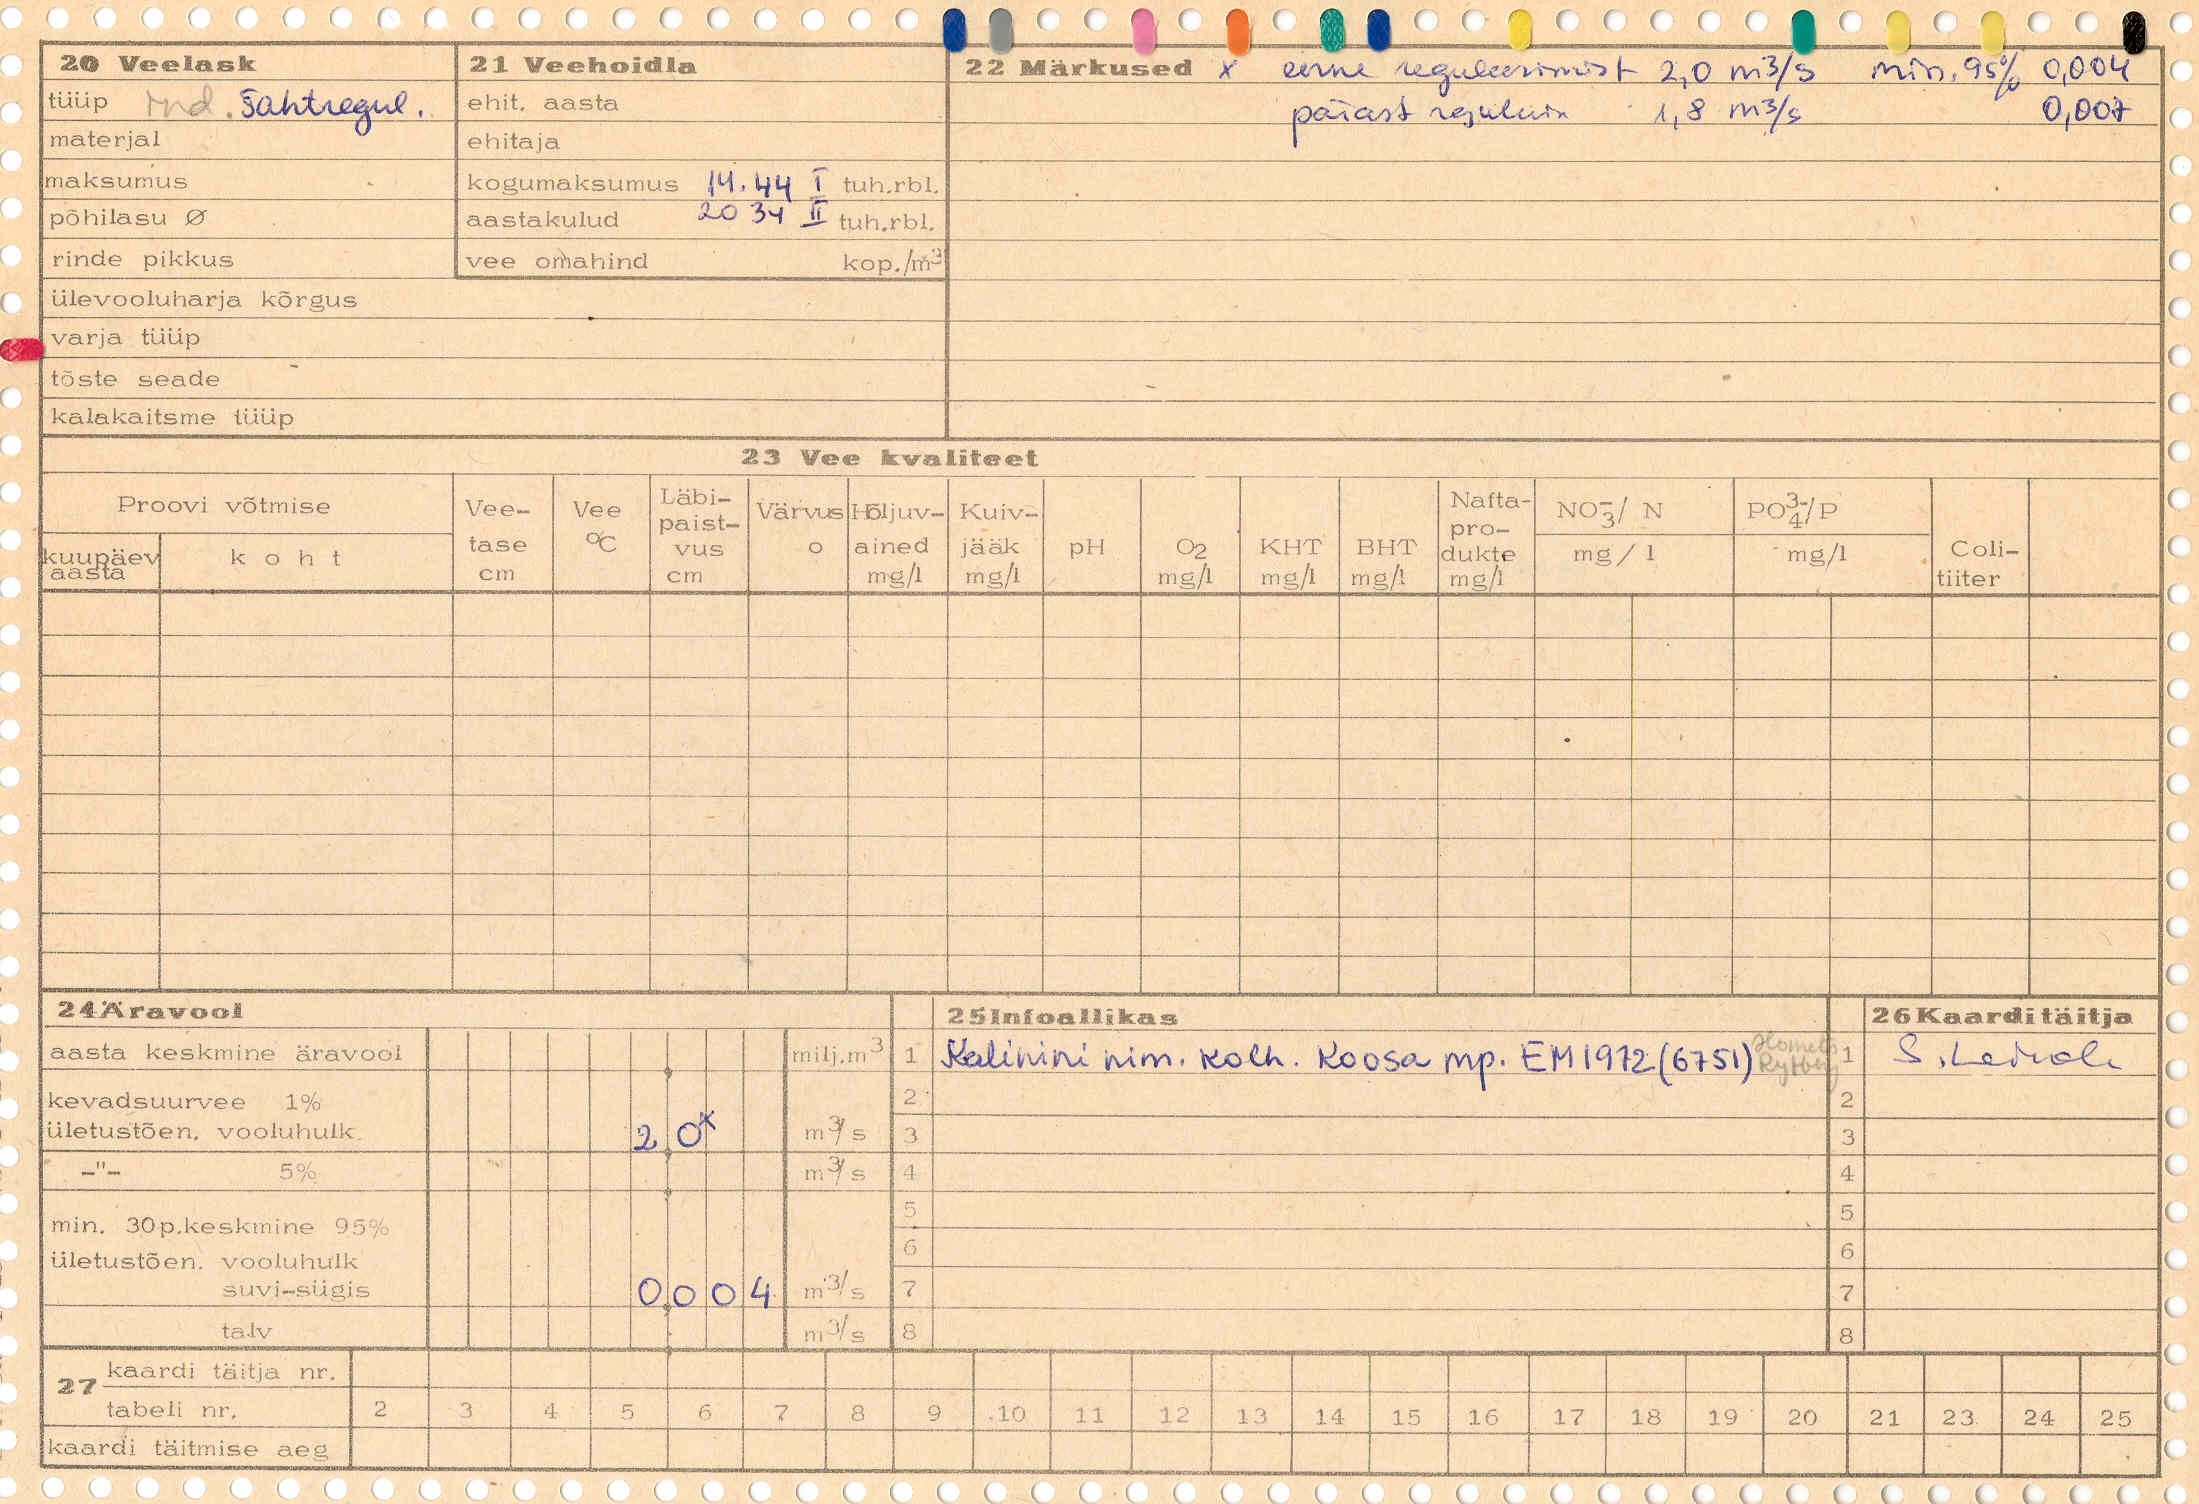 20 Veelask
tüüp rnd. šahtregul.
materjal
maksumus
põhilasu Ø
rinde pikkus
ülevooluharja kõrgus
varja tüüp
tõste seade
kalakaitsme tüüp
21 Veehoidla
ehit. aasta
ehitaja
kogumaksumus 14.44 I tuh.rbl.
aastakulud 20 34 II tuh.rbl.
vee omahind kop./m3
22 Märkused x enne reguleerimist 2,0 m3/s min. 95% 0,004
pärast 1,8 m3/s 0,007
23 Vee kvaliteet
Proovi võtmise
kuupäev
aasta
koht
Vee-
tase
cm
Vee
°C
Läbi-
paist-
vus
cm
Värvus
o
Hõljuv-
ained
mg/l
Kuiv-
jääk
mg/l
pH
O2
mg/l
KHT
mg/l
BHT
mg/l
Nafta-
pro-
dukte
mg/l
NO3-/ N
mg/l
PO4 3-/P
mg/l
Coli-
tiiter
24 Äravool
aasta keskmine äravool milj.m3
kevadsuurvee 1%
ületustõen. vooluhulk 2 0x m3/s
-"- 5% m3/s
min. 30p.keskmine 95%
ületustõen. vooluhulk
suvi-sügis 0 0 0 4 m3/s
talv m3/s
25 Infoallikas
1 Kalinini nim. kolh. Koosa mp. EM 1972 (6751)
2
3
4
5
6
7
8
26 Kaarditäitja
1 S.
2
3
4
5
6
7
8
27 kaardi täitja nr.
tabeli nr. 2 3 4 5 6 7 8 9 10 11 12 13 14 15 16 17 18 19 20 21 23 24 25
kaardi täitmise aeg